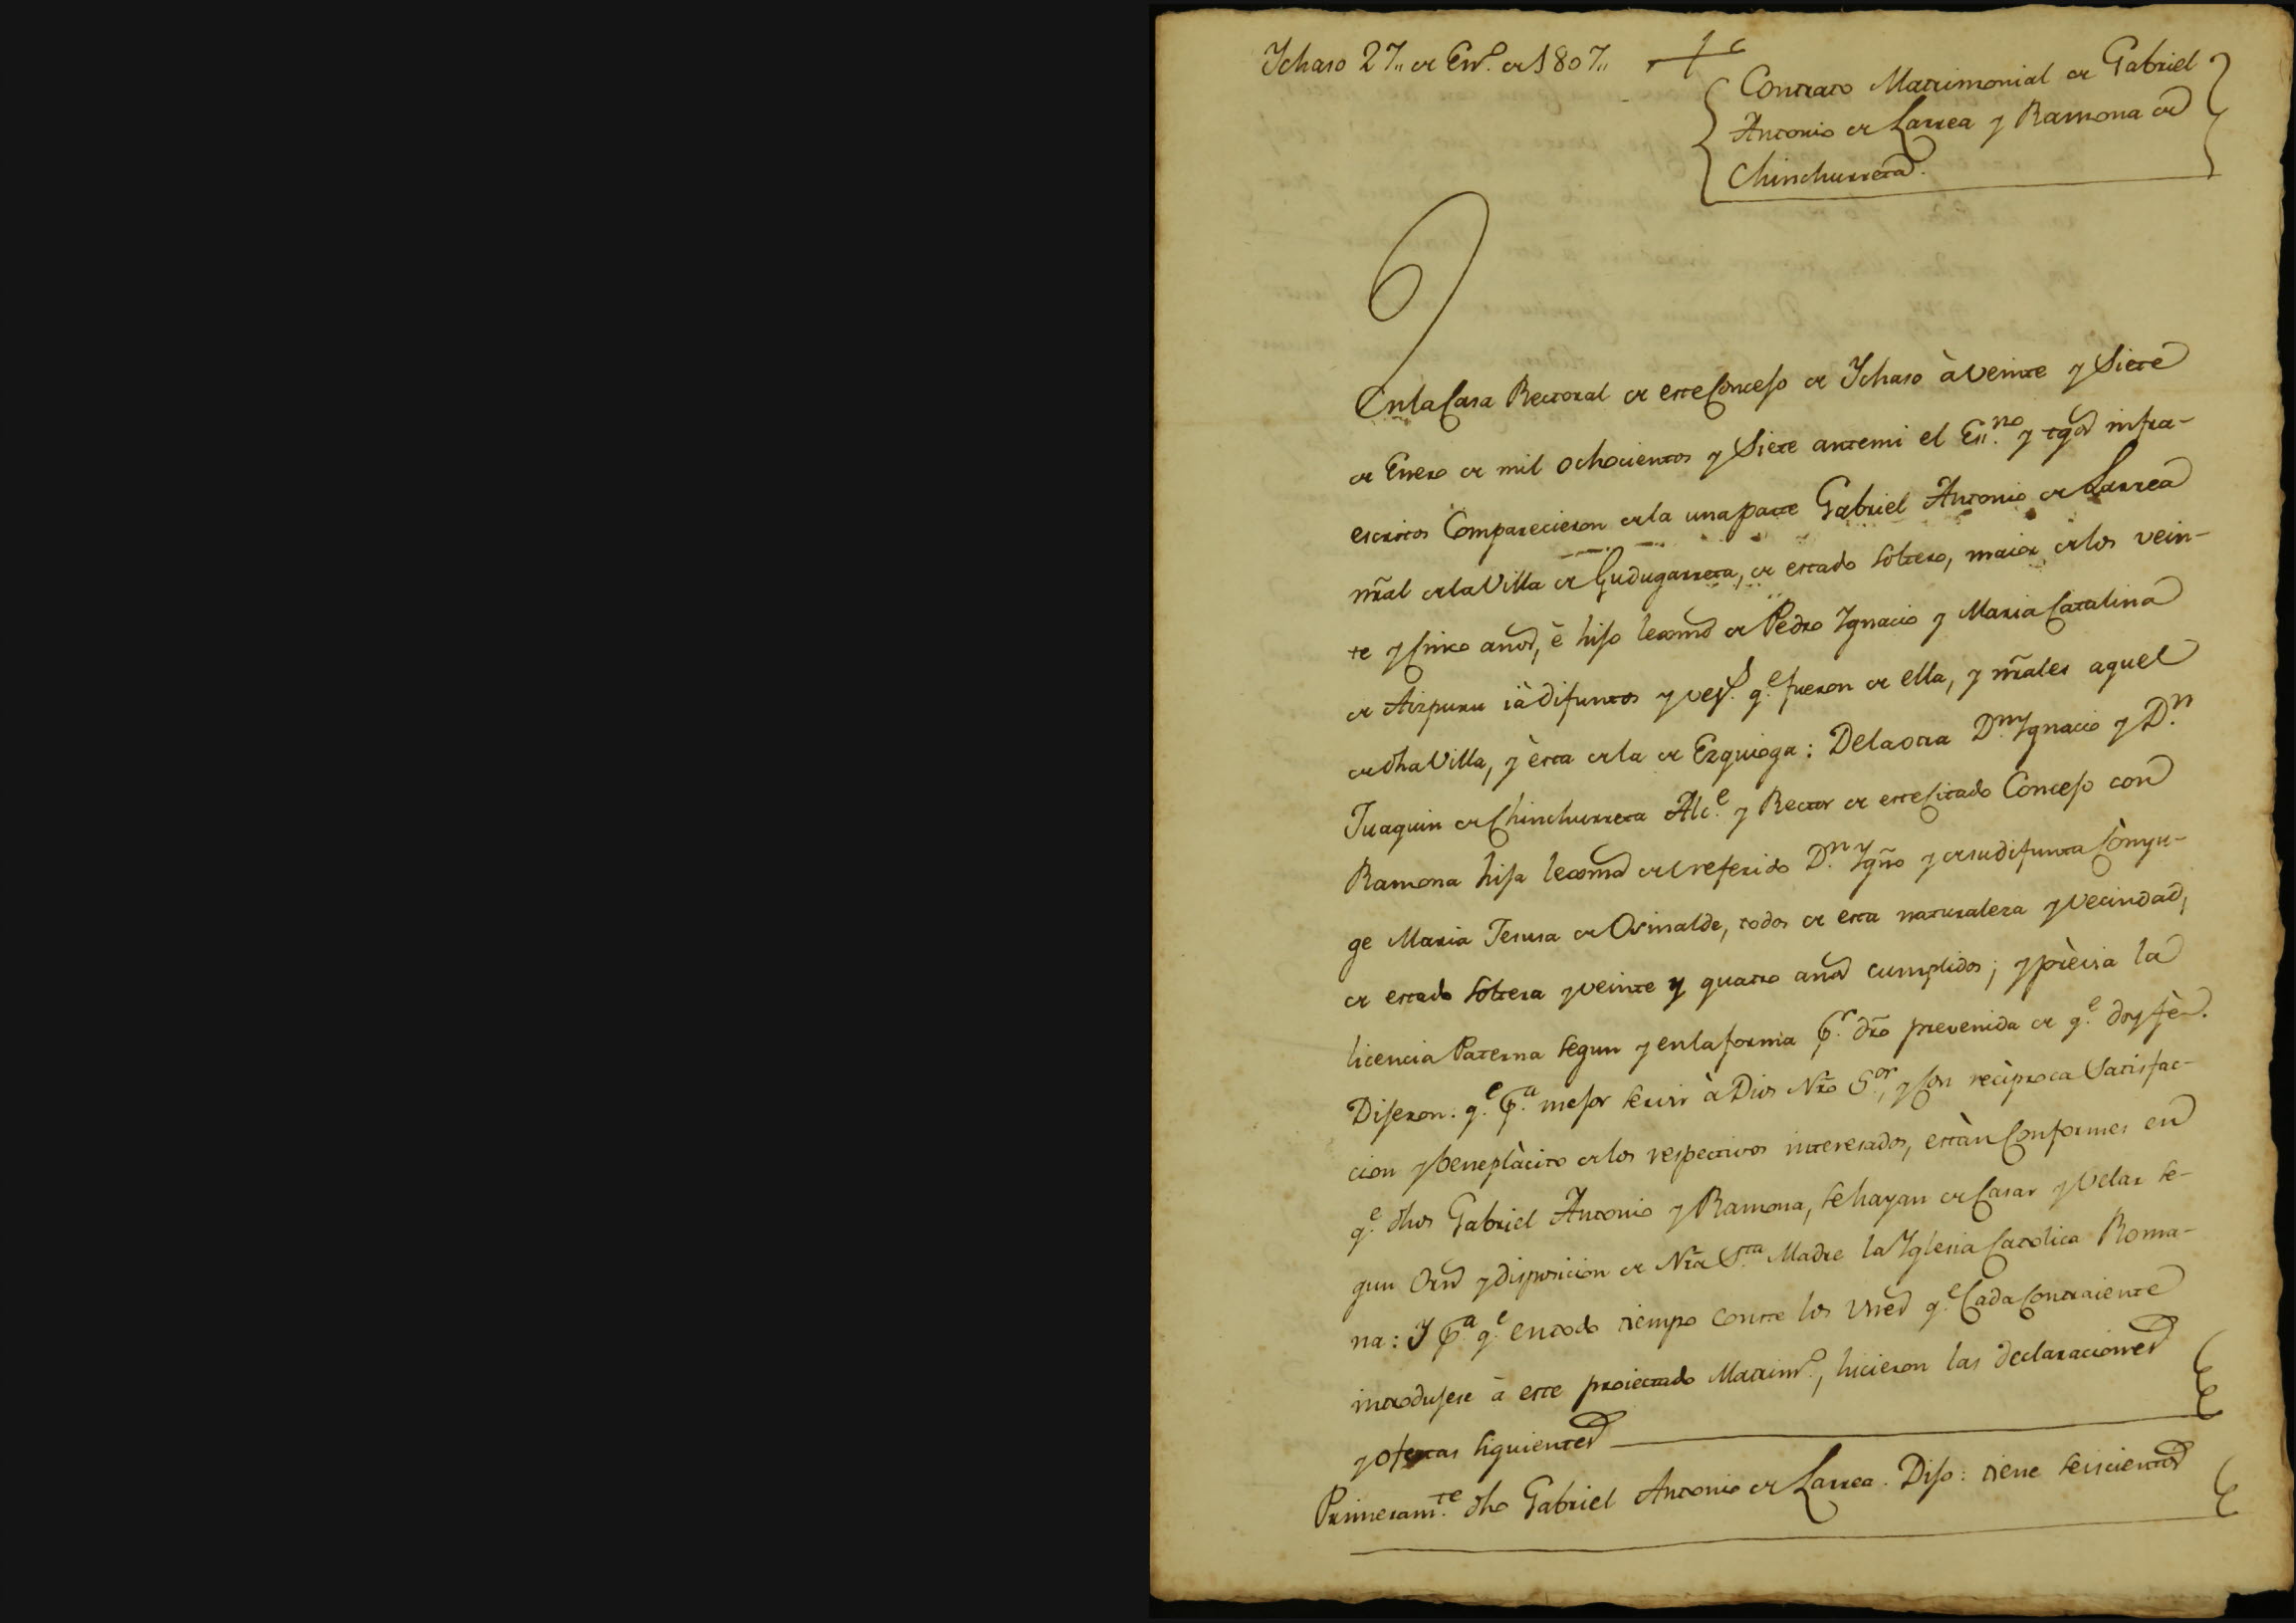 Ychaso 27,, de En.º de 1807,,
Contrato Matrimonial de Gabriel
Antonio de Larrea y Ramona de
Chinchurreta.
En la Casa Rectoral de este Concejo de Ychaso à veinte y Siete
de Enero de mil ochocientos y Siete ante mi el Ess.no y tgos infra-
escritos Comparecieron de la una parte Gabriel Antonio de Larrea
nr̃al de la Villa de Gudugarreta, de estado Soltero, maior de los vein-
te y Cinco años, è hijo lexmo de Pedro Ygnacio y Maria Catalina
de Aizpuru ià difuntos y vez.s q.e fueron de ella, y nr̃ales aquel
de dha Villa, y èsta de la de Ezquioga: De la otra D.n Ygnacio y D.n
Juaquin de Chinchurreta Alc.e y Rector de este Citado Concejo con
Ramona hija lexma del referido D.n Ygño y de su difunta Cònyu-
ge Maria Jesusa de Osinalde, todos de esta naturaleza y vecindad,
de estado Soltera y veinte y quatro años cumplidos; y prèvia la
licencia Paterna Segun y en la forma p.r dr̃o prevenida de q.e doy fè.
Dijeron: q.e p.a mejor Servir à Dios Nr̃o S.or, y Con recìproca Satisfac-
cion y beneplàcito de los respectivos interesados, estàn Conformes en
q.e dhos Gabriel Antonio y Ramona, Se hayan de Casar y Velar Se-
gun Orn y disposicion de Nr̃a S.ta Madre la Yglesia Catolica Roma-
na: Y p.a q.e en todo tiempo Conste los vnes q.e Cada Contraiente
introdujese à este proiectado Matrim.º, hicieron las declaraciones
y ofertas Siguientes
Primeram.te dho Gabriel Antonio de Larrea. Dijo: tiene Seiscientos